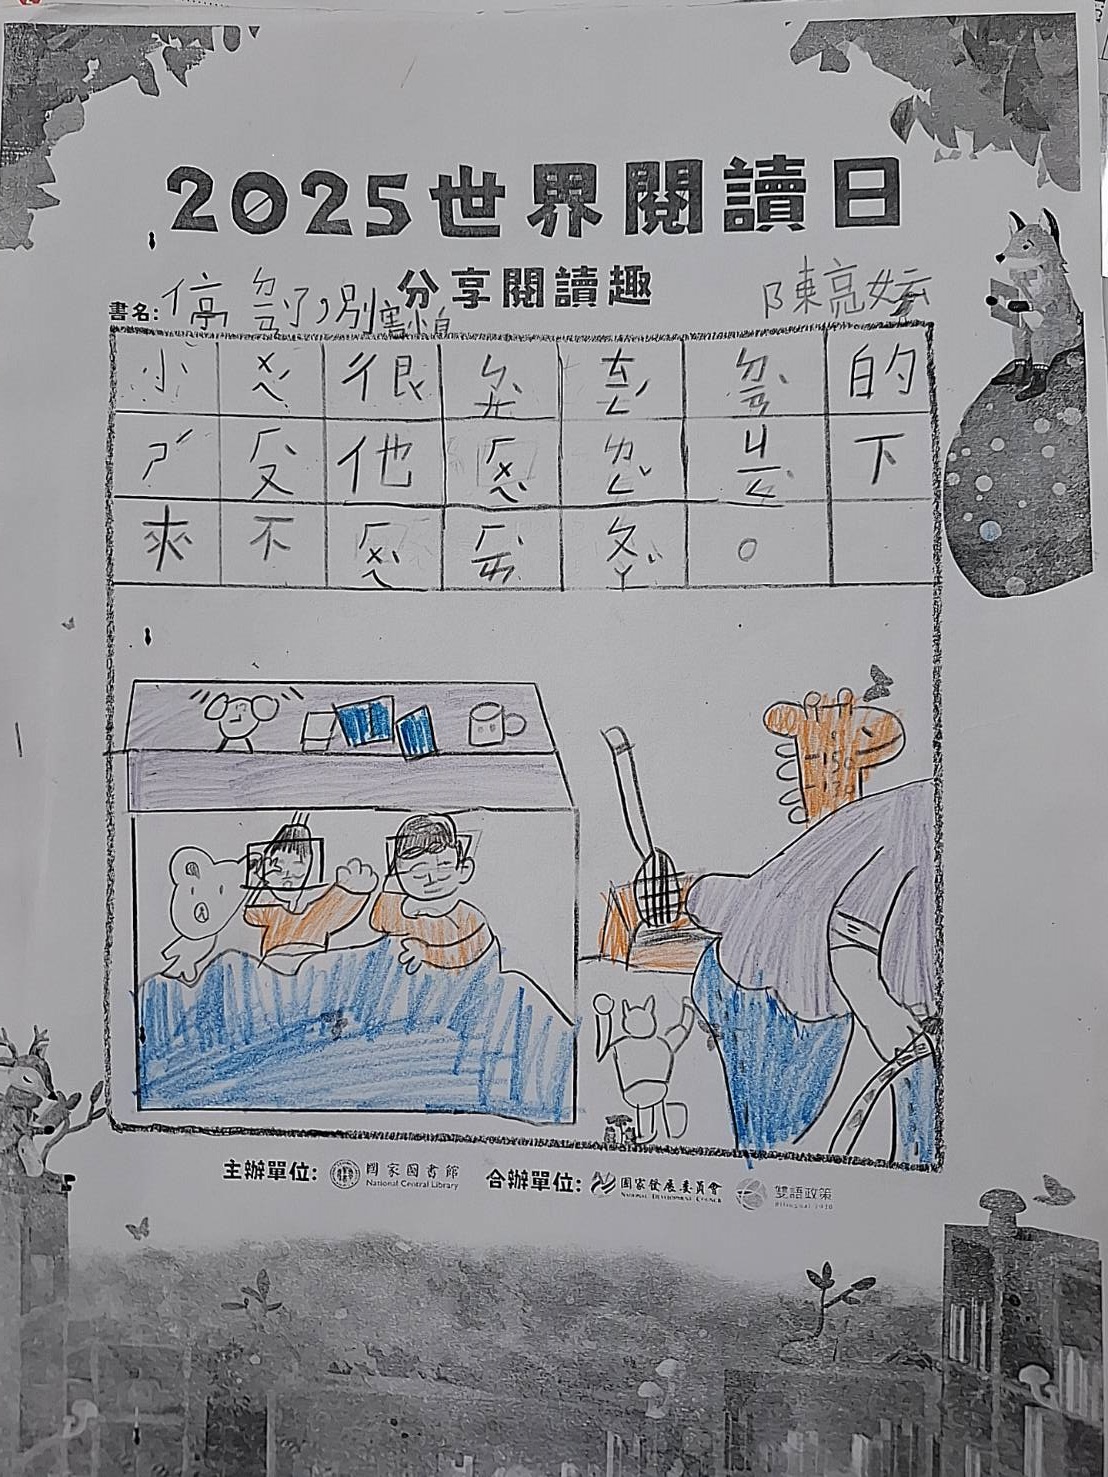 2025世界閱讀日
分享閱讀趣
書名: 停ㄉㄧㄢˋ了,別害怕 陳亮妘
小ㄨㄟˊ很ㄅㄤˋㄊㄧㄥˊㄉㄧㄢˋ的
ㄕˊㄏㄡˋ他ㄏㄨㄟˋㄌㄥˇㄐㄧㄥˋ下
來不ㄏㄨㄟˋㄏㄞˋㄆㄚˋ。
主辦單位: 國家圖書館 National Central Library 合辦單位: 國家發展委員會 NATIONAL DEVELOPMENT COUNCIL 雙語政策 Bilingual 2030